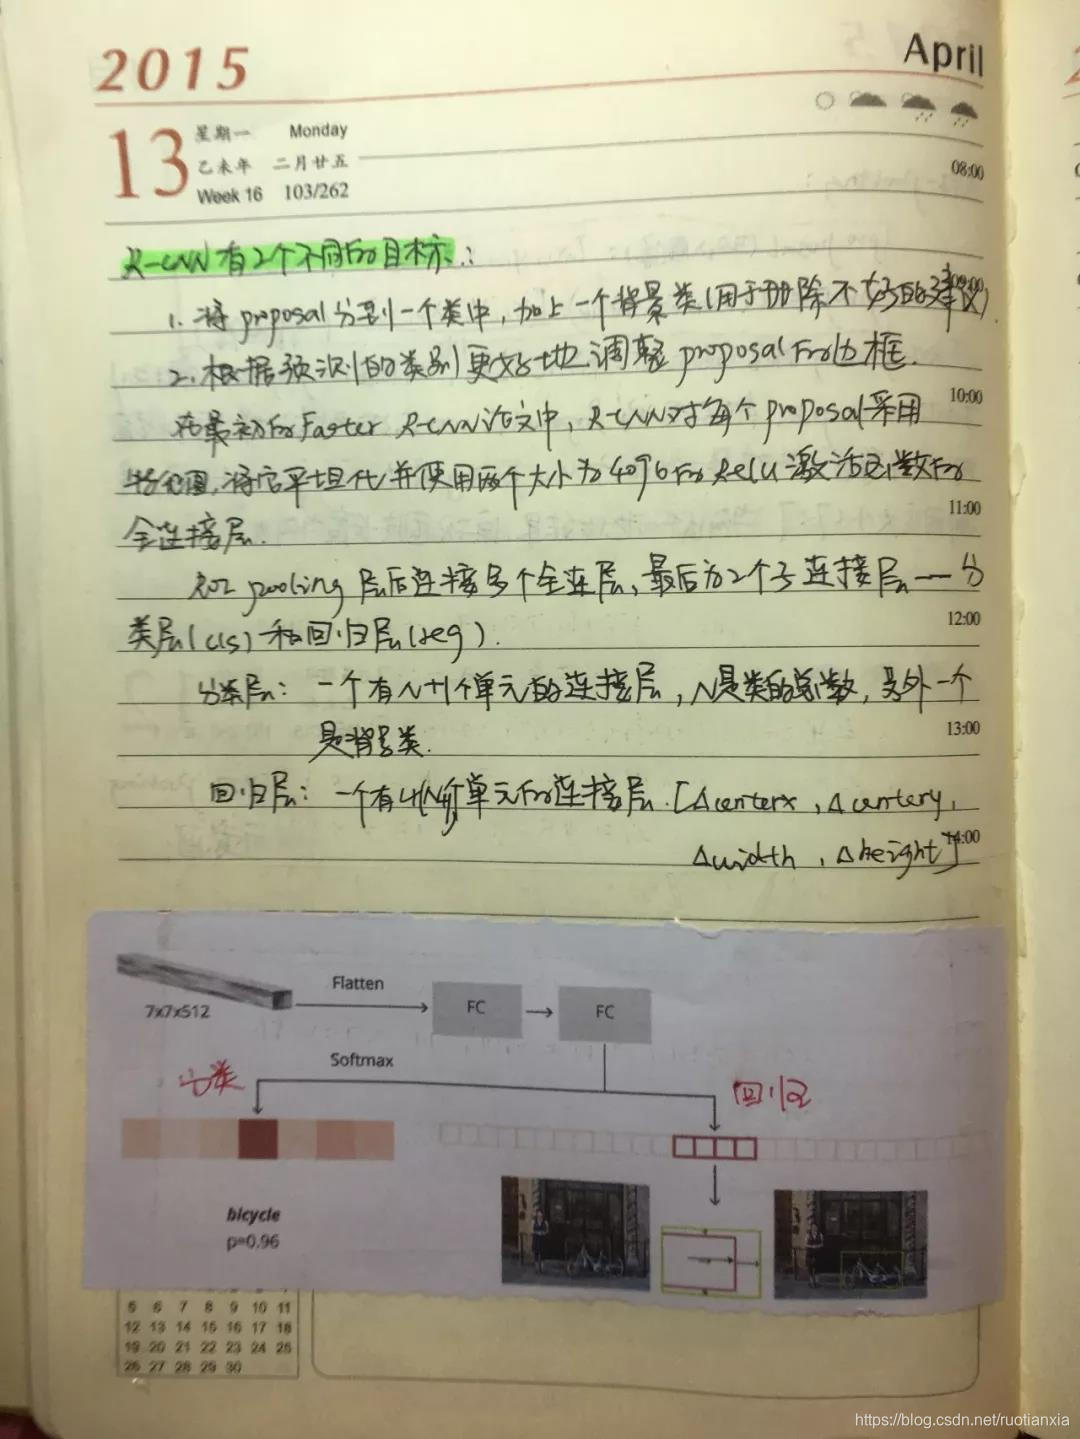 2015
April
13 星期一 Monday
乙未年 二月廿五
Week 16 103/262
08:00
R-CNN有2个不同的目标:
09:00
1. 将proposal分到一个类中,加上一个背景类(用于删除不好的建议)
2. 根据预测的类别更好地调整proposal的边框.
10:00
在最初的Faster R-CNN论文中,R-CNN对每个proposal采用
特征图,将它平坦化并使用两个大小为4096的ReLu激活函数的
11:00
全连接层.
ROI pooling层后连接多个全连层,最后为2个子连接层——分
12:00
类层(cls)和回归层(reg).
分类层: 一个有N+1个单元的连接层,N是类的总数,另外一个
13:00
是背景类.
回归层: 一个有4N个单元的连接层.[Δcenterx,Δcentery,
14:00
Δwidth,Δheight]
Flatten
7x7x512
FC
FC
Softmax
分类
回归
bicycle
p=0.96
5 6 7 8 9 10 11
12 13 14 15 16 17 18
19 20 21 22 23 24 25
26 27 28 29 30
https://blog.csdn.net/ruotianxia